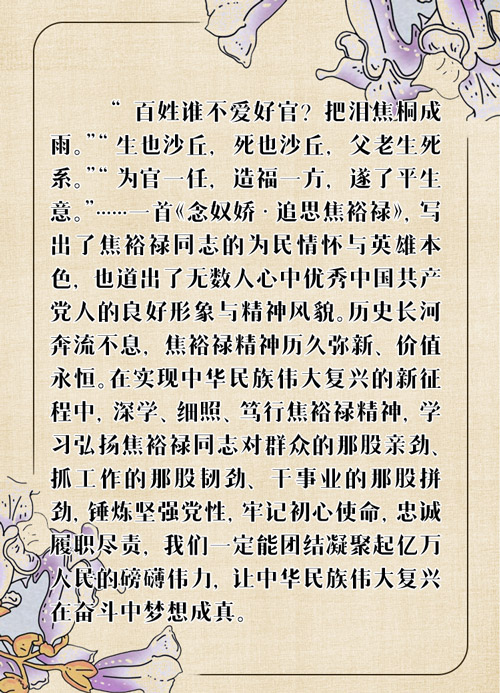 “百姓谁不爱好官？把泪焦桐成
雨。”“生也沙丘，死也沙丘，父老生死
系。”“为官一任，造福一方，遂了平生
意。”……一首《念奴娇·追思焦裕禄》，写
出了焦裕禄同志的为民情怀与英雄本
色，也道出了无数人心中优秀中国共产
党人的良好形象与精神风貌。历史长河
奔流不息，焦裕禄精神历久弥新、价值
永恒。在实现中华民族伟大复兴的新征
程中，深学、细照、笃行焦裕禄精神，学
习弘扬焦裕禄同志对群众的那股亲劲、
抓工作的那股韧劲、干事业的那股拼
劲，锤炼坚强党性，牢记初心使命，忠诚
履职尽责，我们一定能团结凝聚起亿万
人民的磅礴伟力，让中华民族伟大复兴
在奋斗中梦想成真。